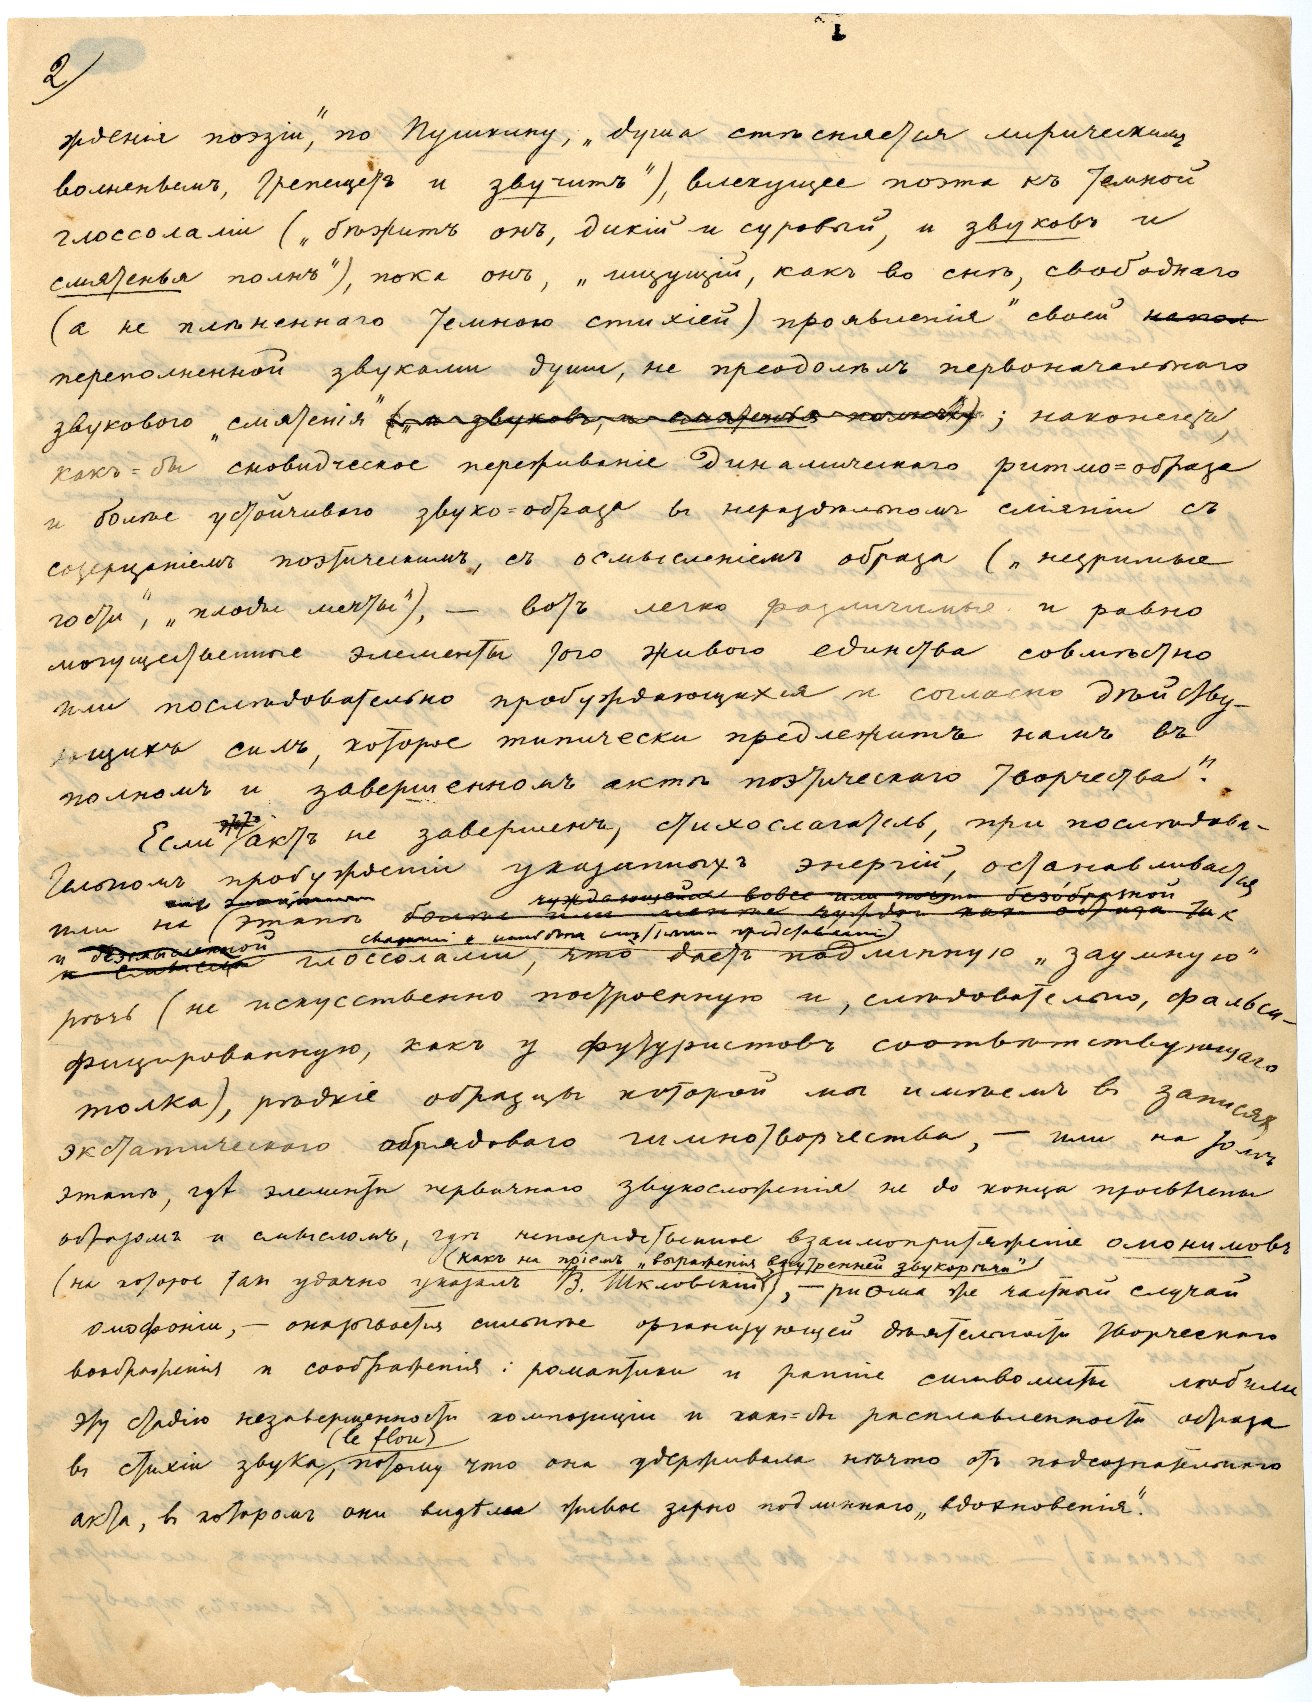 2)
ждение поэзіи", по Пушкину, „душа стѣсняется лирическимъ
волненьемъ, трепещетъ и звучитъ"), влекущее поэта къ темной
глоссолаліи („бѣжитъ онъ, дикій и суровый, и звуковъ и
смятенья полнъ"), пока онъ, „ищущій, какъ во снѣ, свободнаго
(а не плѣненнаго темною стихіей) проявленія" своей напол
переполненной звуками души, не преодолѣлъ первоначальнаго
звукового „смятенія" („и звуковъ, и смятенья полнъ"); наконецъ,
какъ=бы сновидческое переживаніе динамическаго ритмо=образа
и болѣе устойчиваго звуко=образа въ нераздѣльномъ сліяніи съ
созерцаніемъ поэтическимъ, съ осмысленіемъ образа („незримые
гости", „плоды мечты"), — вотъ легко различимые и равно
могущественные элементы того живого единства совмѣстно
или послѣдовательно пробуждающихся и согласно дѣйству-
ющихъ силъ, которое типически предлежитъ намъ въ
полномъ и завершенномъ актѣ поэтическаго творчества".
Если этотъ актъ не завершенъ, стихослагатель, при послѣдова-
тельномъ пробужденіи указанныхъ энергій, останавливается
чуждающейся вовсе или почти безобразной
или на этапѣ болѣе или менѣе чуждой какъ образа такъ
и безсмысленной
и смысла глоссолаліи, что даетъ подлинную „заумную"
рѣчь (не искусственно построенную и, слѣдовательно, фальси-
фицированную, какъ у футуристовъ соотвѣтствующаго
толка), рѣдкіе образцы которой мы имѣемъ въ записяхъ
экстатическаго обрядоваго гимнотворчества, — или на томъ
этапѣ, гдѣ элементы первичнаго звукосложенія не до конца просвѣтлены
образомъ и смысломъ, гдѣ непосредственное взаимопритяженіе омонимовъ
(какъ на пріемъ „выраженія внутренней звукорѣчи")
(на которое такъ удачно указалъ В. Шкловскій), — риѳма же частный случай
омофоніи, — оказывается сильнѣе организующей дѣятельности творческаго
воображенія и соображенія: романтики и ранніе символисты любили
эту стадію незавершенности композиціи и какъ=бы расплавленности образа
(le flou)
въ стихіи звука, потому что она удерживала нѣчто отъ подсознательнаго
акта, въ которомъ они видѣли живое зерно подлиннаго „вдохновенія".